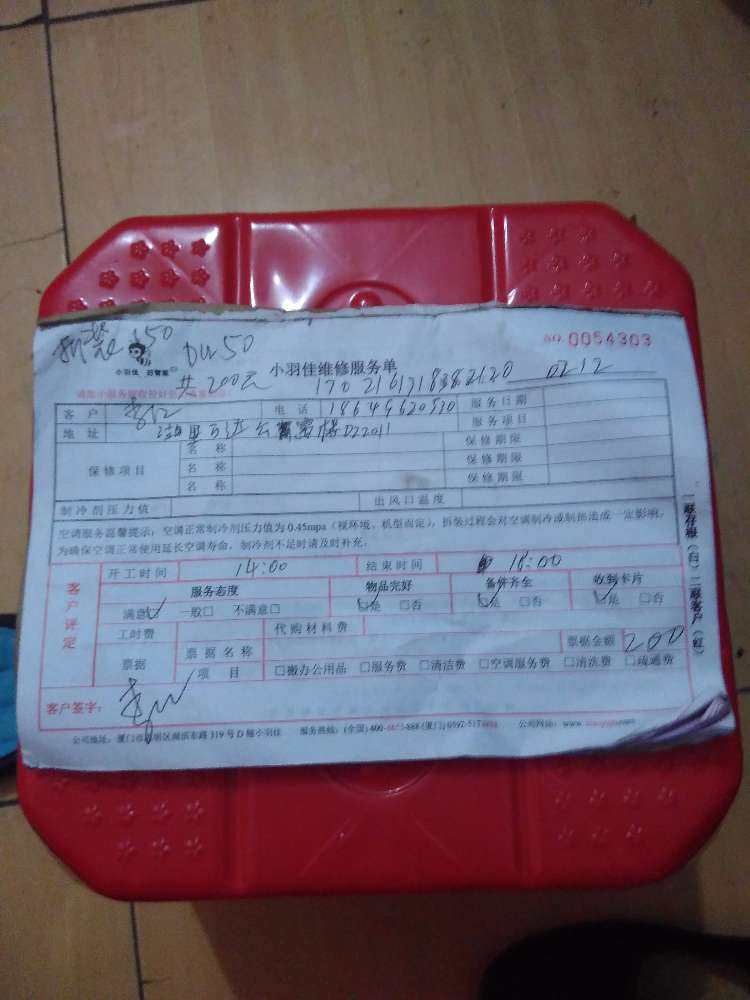 拆装 150
DU 50
小羽佳 好管家
小羽佳维修服务单
NO. 0054303
共 200元 17021617183382120 0212
客户
电话 18649620520 服务日期
地址 D22011 服务项目
保修项目 名称 保修期限
名称 保修期限
名称 保修期限
制冷剂压力值 出风口温度
空调服务温馨提示:空调正常制冷剂压力值为0.45mpa(视环境、机型而定),拆装过程会对空调制冷或制热造成一定影响。
为确保空调正常使用延长空调寿命,制冷剂不足时请及时补充。
客户评定
开工时间 14:00 结束时间 18:00
服务态度 物品完好 备件齐全 收到卡片
满意☑ 一般□ 不满意□ ☑是 □否 ☑是 □否 ☑是 □否
工时费 代购材料费
票据 票据名称 票据金额 200
项目 □搬办公用品 □服务费 □清洁费 □空调服务费 □清洗费 □疏通费
客户签字:
一联存根(白) 二联客户(红)
公司地址:厦门市思明区湖滨东路319号D幢小羽佳 服务热线:(全国)400-
公司网站:www.